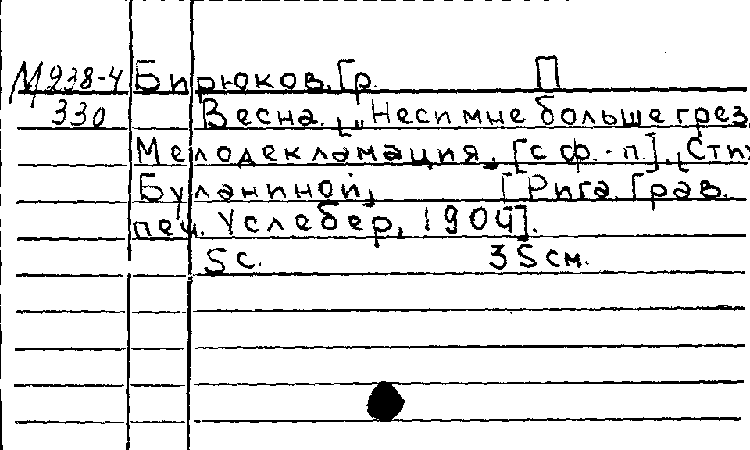 М938-4 Бирюков, Гр. П
330 Весна. „Неси мне больше грез
Мелодекламация, [с ф.-п]. [Сти
Буланиной, [Рига. Грав.
печ. Услебер, 1909].
5 с. 35 см.